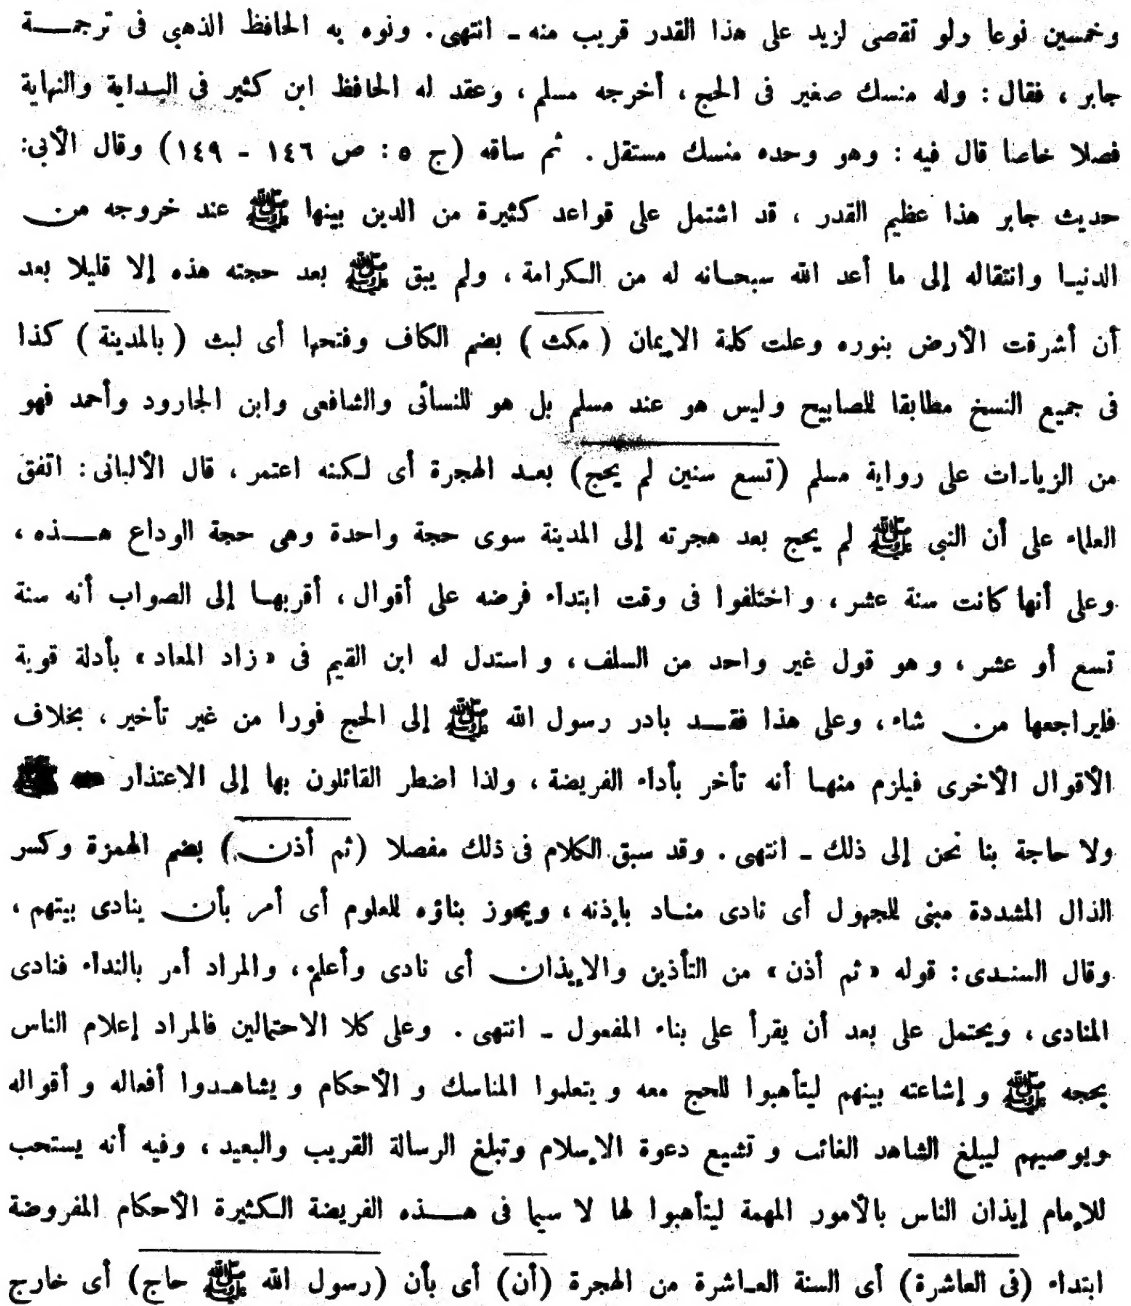 وخمسين نوعا ولو تقصى لزيد على هذا القدر قريب منه ـ انتهى . ونوه به الحافظ الذهبي فى ترجمــة
جابر ، فقال : وله منسك صغير فى الحج ، أخرجه مسلم ، وعقد له الحافظ ابن كثير فى البداية والنهاية
فصلا خاصا قال فيه : وهو وحده منسك مستقل . ثم ساقه (ج ٥ : ص ١٤٦ - ١٤٩) وقال الأبى:
حديث جابر هذا عظيم القدر ، قد اشتمل على قواعد كثيرة من الدين بينها ﷺ عند خروجه من
الدنيا وانتقاله إلى ما أعد الله سبحانه له من الكرامة ، ولم يبق ﷺ بعد حجته هذه إلا قليلا بعد
أن أشرقت الأرض بنوره وعلت كلمة الإيمان (مكث) بضم الكاف وفتحها أى لبث (بالمدينة) كذا
فى جميع النسخ مطابقا للصابيح وليس هو عند مسلم بل هو للنسائى والشافعى وابن الجارود وأحمد فهو
من الزيادات على رواية مسلم (تسع سنين لم يحج) بعد الهجرة أى لكنه اعتمر ، قال الألبانى : اتفق
العلماء على أن النبى ﷺ لم يحج بعد هجرته إلى المدينة سوى حجة واحدة وهى حجة الوداع هــذه ،
وعلى أنها كانت سنة عشر ، واختلفوا فى وقت ابتداء فرضه على أقوال ، أقربها إلى الصواب أنه سنة
تسع أو عشر ، و هو قول غير واحد من السلف ، و استدل له ابن القيم فى « زاد المعاد » بأدلة قوية
فليراجعها من شاء ، وعلى هذا فقــد بادر رسول الله ﷺ إلى الحج فورا من غير تأخير ، بخلاف
الأقوال الأخرى فيلزم منها أنه تأخر بأداء الفريضة ، ولذا اضطر القائلون بها إلى الاعتذار
ولا حاجة بنا نحن إلى ذلك ـ انتهى . وقد سبق الكلام فى ذلك مفصلا (ثم أذن) بضم الهمزة وكسر
الذال المشددة مبنى للجهول أى نادى منـاد بإذنه ، ويجوز بناؤه للعلوم أى أمر بأن ينادى بيتهم ،
وقال السندى : قوله « ثم أذن » من التأذين والإيذان أى نادى وأعلم ، والمراد أمر بالنداء فنادى
المنادى ، ويحتمل على بعد أن يقرأ على بناء المفعول ـ انتهى . وعلى كلا الاحتمالين فالمراد إعلام الناس
بحجه ﷺ و إشاعته بينهم ليتأهبوا للحج معه و يتعلموا المناسك و الأحكام و يشاهـدوا أفعاله و أقواله
ويوصيهم ليبلغ الشاهد الغائب و تشيع دعوة الإسلام وتبلغ الرسالة القريب والبعيد ، وفيه أنه يستحب
للإمام إيذان الناس بالأمور المهمة ليتأهبوا لها لا سيما فى هــذه الفريضة الكثيرة الأحكام المفروضة
ابتداء (فى العاشرة) أى السنة العـاشرة من الهجرة (أن) أى بأن (رسول الله ﷺ حاج) أى خارج